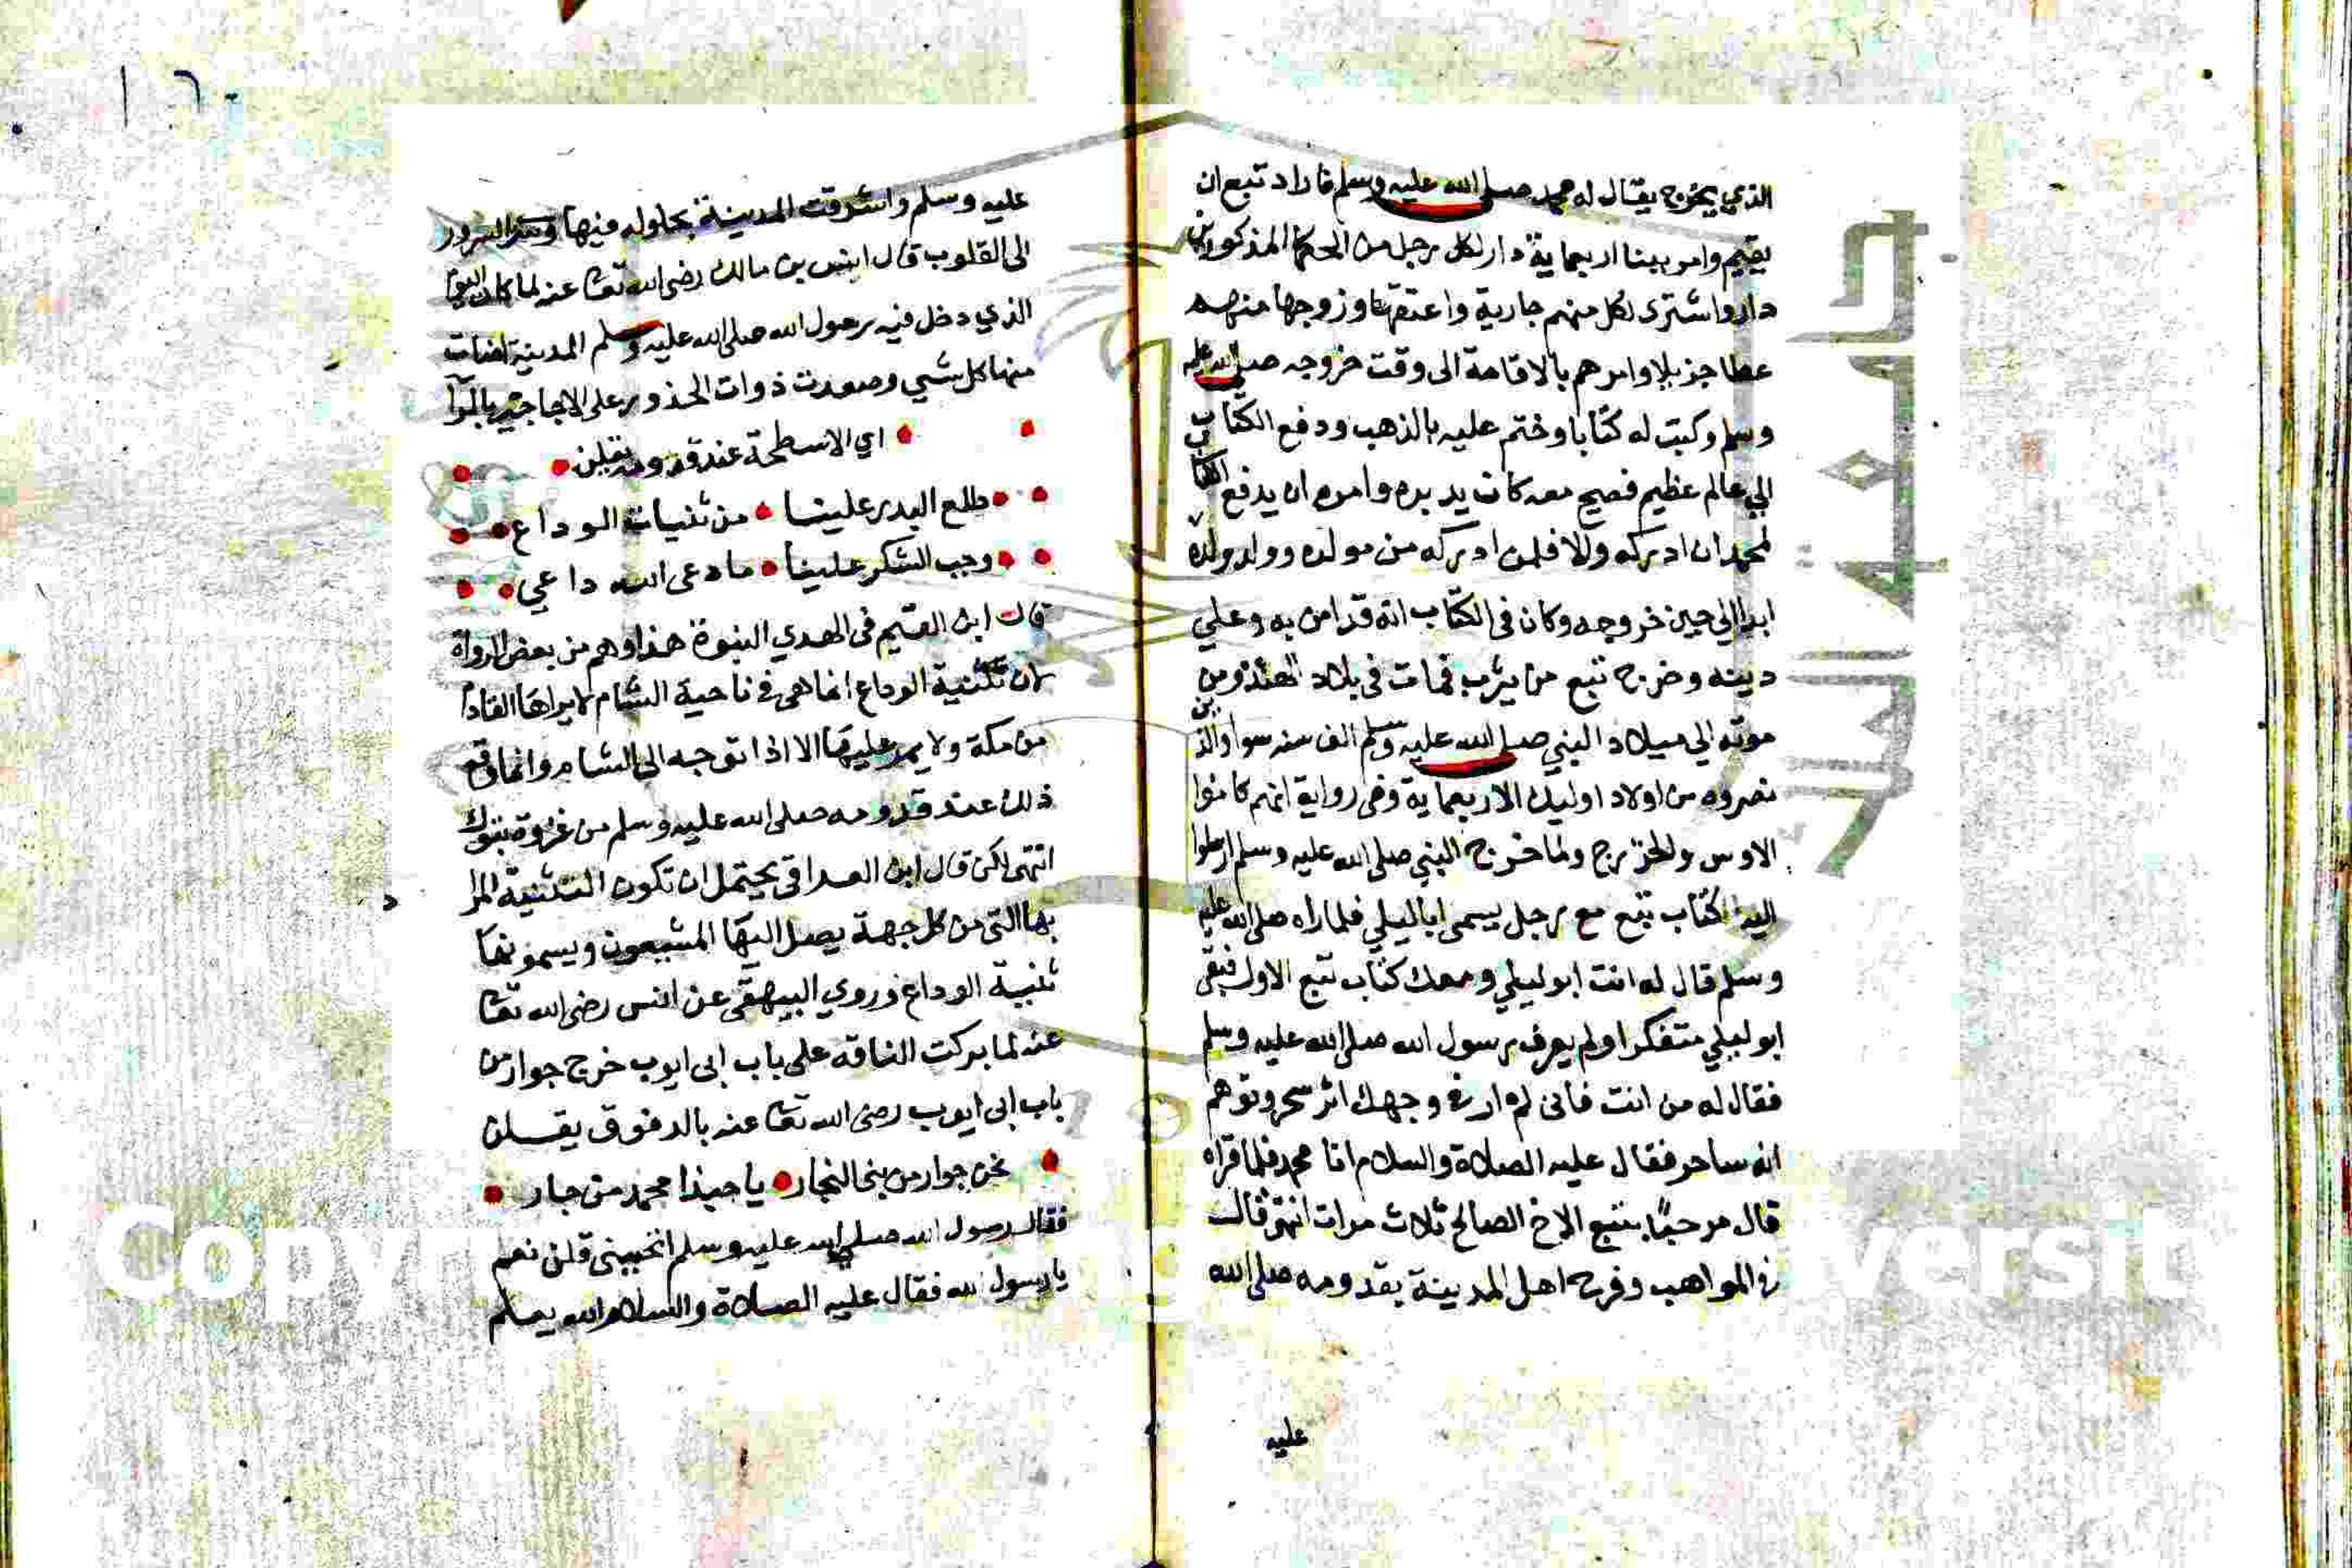 الذي يخرج يقال له محمد صلى الله عليه وسلم فاراد تبع ان
يقيم وامر ببنا اربعماية دار لكل رجل من الحكما المذكورين
دار واشترى لكل منهم جارية واعتقها وزوجها منهم
عطا جزيلا وامرهم بالاقامة الى وقت خروجه صلى الله عليه
وسلم وكتب له كتابا وختم عليه بالذهب ودفع الكتاب
الي عالم عظيم فصيح معه كان يدبره وامره ان يدفع الكتاب
لمحمد ان ادركه والا فلمن ادركه من مولده وولد ولده
ابدا الي حين خروجه وكان في الكتاب انه قد امن به وعلي
دينه وخرج تبع من يثرب فمات في بلاد الهند ومن
موته الى ميلاد النبي صلى الله عليه وسلم الف سنه سوا والذين
نصروه من اولاد اوليك الاربعماية وفي رواية انهم كانوا
الاوس والخزرج ولما خرج النبي صلى الله عليه وسلم ارسلوا
اليه كتاب تبع مع رجل يسمى ابا ليلي فلما راه صلى الله عليه
وسلم قال له انت ابو ليلي ومعك كتاب تبع الاول فبقي
ابو ليلي متفكرا ولم يعرف رسول الله صلى الله عليه وسلم
فقال له من انت فاني لم ار في وجهك اثر سحر وتوهم
انه ساحر فقال عليه الصلاة والسلام انا محمد فلما قراه
قال مرحبا بتبع الاخ الصالح ثلاث مرات انتهى قال
في المواهب وفرح اهل المدينة بقدومه صلى الله
عليه
عليه وسلم واشرقت المدينة بحلوله فيها السرور
الى القلوب قال انس بن مالك رضي الله تعا عنه لما كان اليوم
الذي دخل فيه رسول الله صلى الله عليه وسلم المدينة اضات
منها كل شي وصعدت ذوات الخذور على الاجاجير
اي الاسطحة عند قدومه يقلن
طلع البدر علينا من ثنيات الوداع
وجب الشكر علينا ما دعى الله داعي
قال ابن القيم في الهدي النبوة هذا وهم من بعض الرواة
لان ثنية الوداع انما هي في ناحية الشام لا يراها القادم
من مكة ولا يمر عليها الا اذا توجه الى الشام وانما وقع
ذلك عند قدومه صلى الله عليه وسلم من غزوة تبوك
انتهى لكن قال ابن العراقي يحتمل ان تكون الثنية المراد
بها التي من كل جهة يصل اليها المشيعون ويسمونها
ثنية الوداع وروي البيهقى عن انس رضي الله تعا
عنه لما بركت الناقه على باب ابى ايوب خرج جوار من
باب ابى ايوب رضى الله تعا عنه بالدفوف يقلن
نحن جوار من بنى النجار يا حبذا محمد من جار
فقال رسول الله صلى الله عليه وسلم اتحببنى قلن نعم
يا رسول الله فقال عليه الصلاة والسلام الله يعلم
Copyr versit